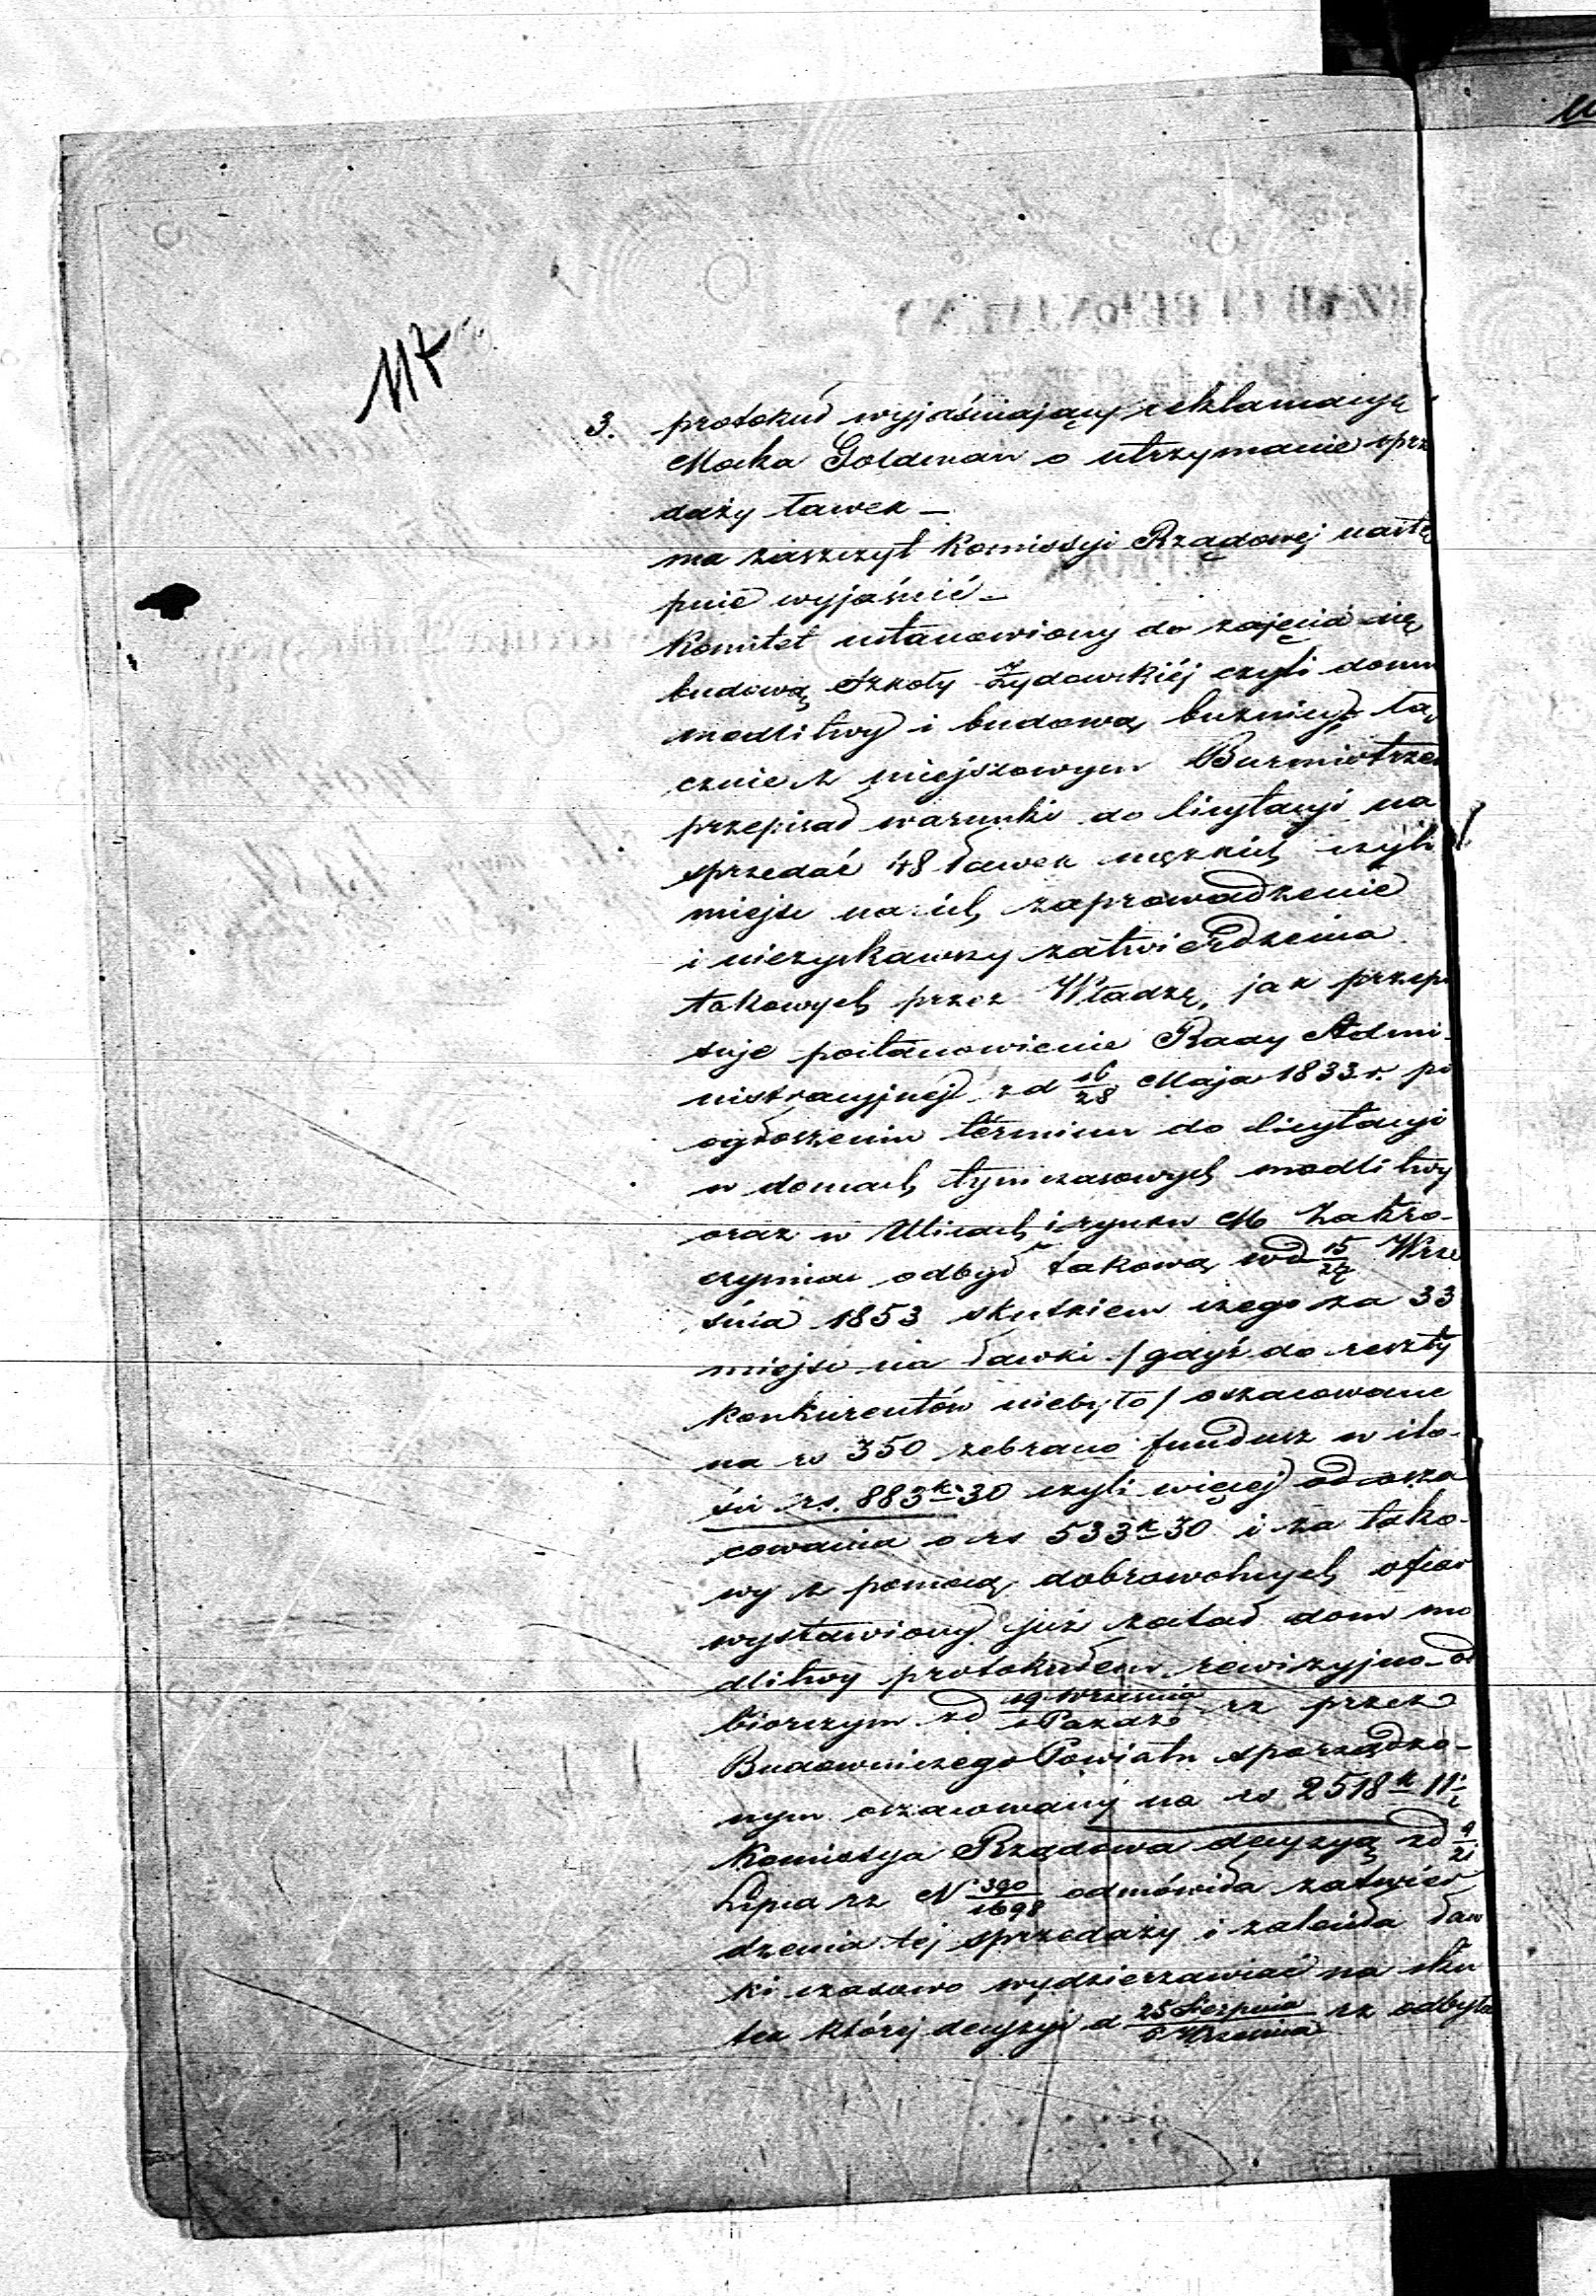 117
3. protokuł wyjaśniający reklamacyę
Mośka Goldman o utrzymanie sprze
daży ławek —
ma zaszczyt Komissyi Rządowej nastę
pnie wyjaśnić —
Komitet ustanowiony do zajęcia się
budową Szkoły Żydowskiéj czyli domu
modlitwy i budową bużnicy, łą
cznie z miejscowym Burmistrzem
przepisał warunki do licytacyi na
sprzedaż 48 ławek męzkich czyli
miejsc na ich zaprowadzenie
i nieczyskawszy zatwierdzenia
takowych przez Władzę, jak przepi
suje postanowienie Rady Admi-
nistracyjnej z d 16/28 Maja 1833 r. po
ogłoszeniu terminu do licytacyi
w domach tymczasowych modlitwy
oraz w Ulicach i rynku M Zakro-
czymia odbył takową w d 15/27 Wrze
śnia 1853 skutkiem czego za 33
miejsc na ławki /gdyż do reszty
konkurentów niebyło/ oszacowane
na rs 350 zebrano fundusz w ilo-
ści rs. 883 k. 30 czyli więcej od osza
cowania o rs 533 k 30 i za tako-
wy z pomocą dobrowolnych ofiar
wystawiony już został dom mo
dlitwy protokułem rewizyjno-od
biorczym z d 19 Września/1 Paźdz rz przez
Budowniczego Powiatu sporządzo-
nym oszacowany na rs 2518 k 11
Komissya Rządowa decyzyą z d 9/21
Lipca rz N 390/1698 odmówiła zatwier
dzenia tej sprzedaży i zaleciła ław
ki czasowo wydzierzawiać na sku
tek której decyzyi d 25 Sierpnia/6 Września rz odbyta